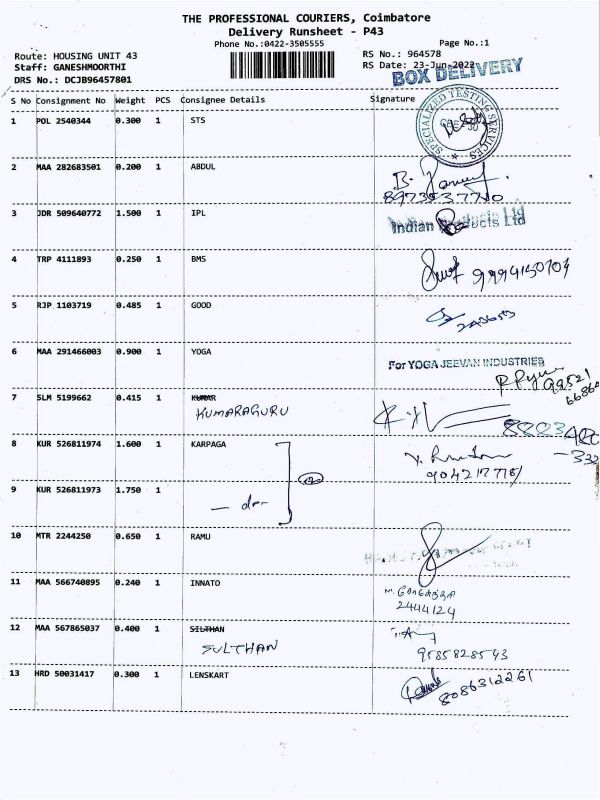 THE PROFESSIONAL COURIERS, Coimbatore
Delivery Runsheet - P43
Phone No.:0422-3505555 Page No.:1
Route: HOUSING UNIT 43 RS No.: 964578
Staff: GANESHMOORTHI RS Date: 23-Jun-2022
DRS No.: DCJB96457801
BOX DELIVERY
S No Consignment No Weight PCS Consignee Details Signature
1 POL 2540344 0.300 1 STS
SPECIALIZED TESTING SERVICES
2 MAA 282683501 0.200 1 ABDUL
3 JDR 509640772 1.500 1 IPL
Indian Products Ltd
4 TRP 4111893 0.250 1 BMS
9994150704
5 RJP 1103719 0.485 1 GOOD
6 MAA 291466003 0.900 1 YOGA
For YOGA JEEVAN INDUSTRIES
7 SLM 5199662 0.415 1 KUMAR
KUMARAGURU
8 KUR 526811974 1.600 1 KARPAGA
9 KUR 526811973 1.750 1
— do—
10 MTR 2244250 0.650 1 RAMU
11 MAA 566740895 0.240 1 INNATO
2444124
12 MAA 567865037 0.400 1 SILTHAN
SULTHAN
9585828543
13 HRD 50031417 0.300 1 LENSKART
8086312261